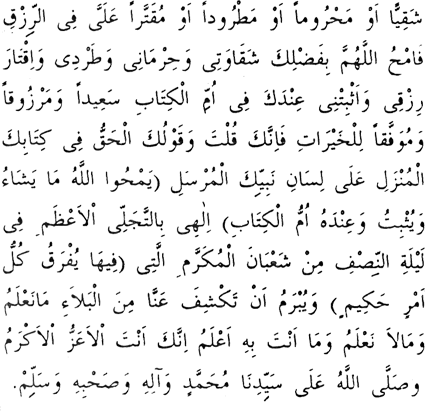 شَقِيًّا اَوْ مَحْرُوماً اَوْ مَطْرُوداً اَوْ مُقَتَّراً عَلَىَّ فِى الرِّزْقِ
فَامْحُ اللَّهُمَّ بِفَضْلِكَ شَقَاوَتِى وَحِرْمَانِى وَطَرْدِى وَاِقْتَارَ
رِزْقِى وَاَثْبِتْنِى عِنْدَكَ فِى اُمِّ الْكِتَابِ سَعِيداً وَمَرْزُوقاً
وَمُوَفَّقاً لِلْخَيْرَاتِ فَاِنَّكَ قُلْتَ وَقَوْلُكَ الْحَقُّ فِى كِتَابِكَ
الْمُنْزَلِ عَلَى لِسَانِ نَبِيِّكَ الْمُرْسَلِ (يَمْحُوا اللَّهُ مَا يَشَاءُ
وَيُثْبِتُ وَعِنْدَهُ اُمُّ الْكِتَابِ) اِلٰهِى بِالتَّجَلِّى اْلاَعْظَمِ فِى
لَيْلَةِ النِّصْفِ مِنْ شَعْبَانَ الْمُكَرَّمِ الَّتِى (فِيهَا يُفْرَقُ كُلُّ
اَمْرٍ حَكِيمٍ) وَيُبْرَمُ اَنْ تَكْشِفَ عَنَّا مِنَ الْبَلاَءِ مَانَعْلَمُ
وَمَالاَ نَعْلَمُ وَمَا اَنْتَ بِهِ اَعْلَمُ اِنَّكَ اَنْتَ اْلاَعَزُّ اْلاَكْرَمُ
وصَلَّى اللَّهُ عَلَى سَيِّدِنَا مُحَمَّدٍ وَآلِهِ وَصَحْبِهِ وَسَلِّمْ.